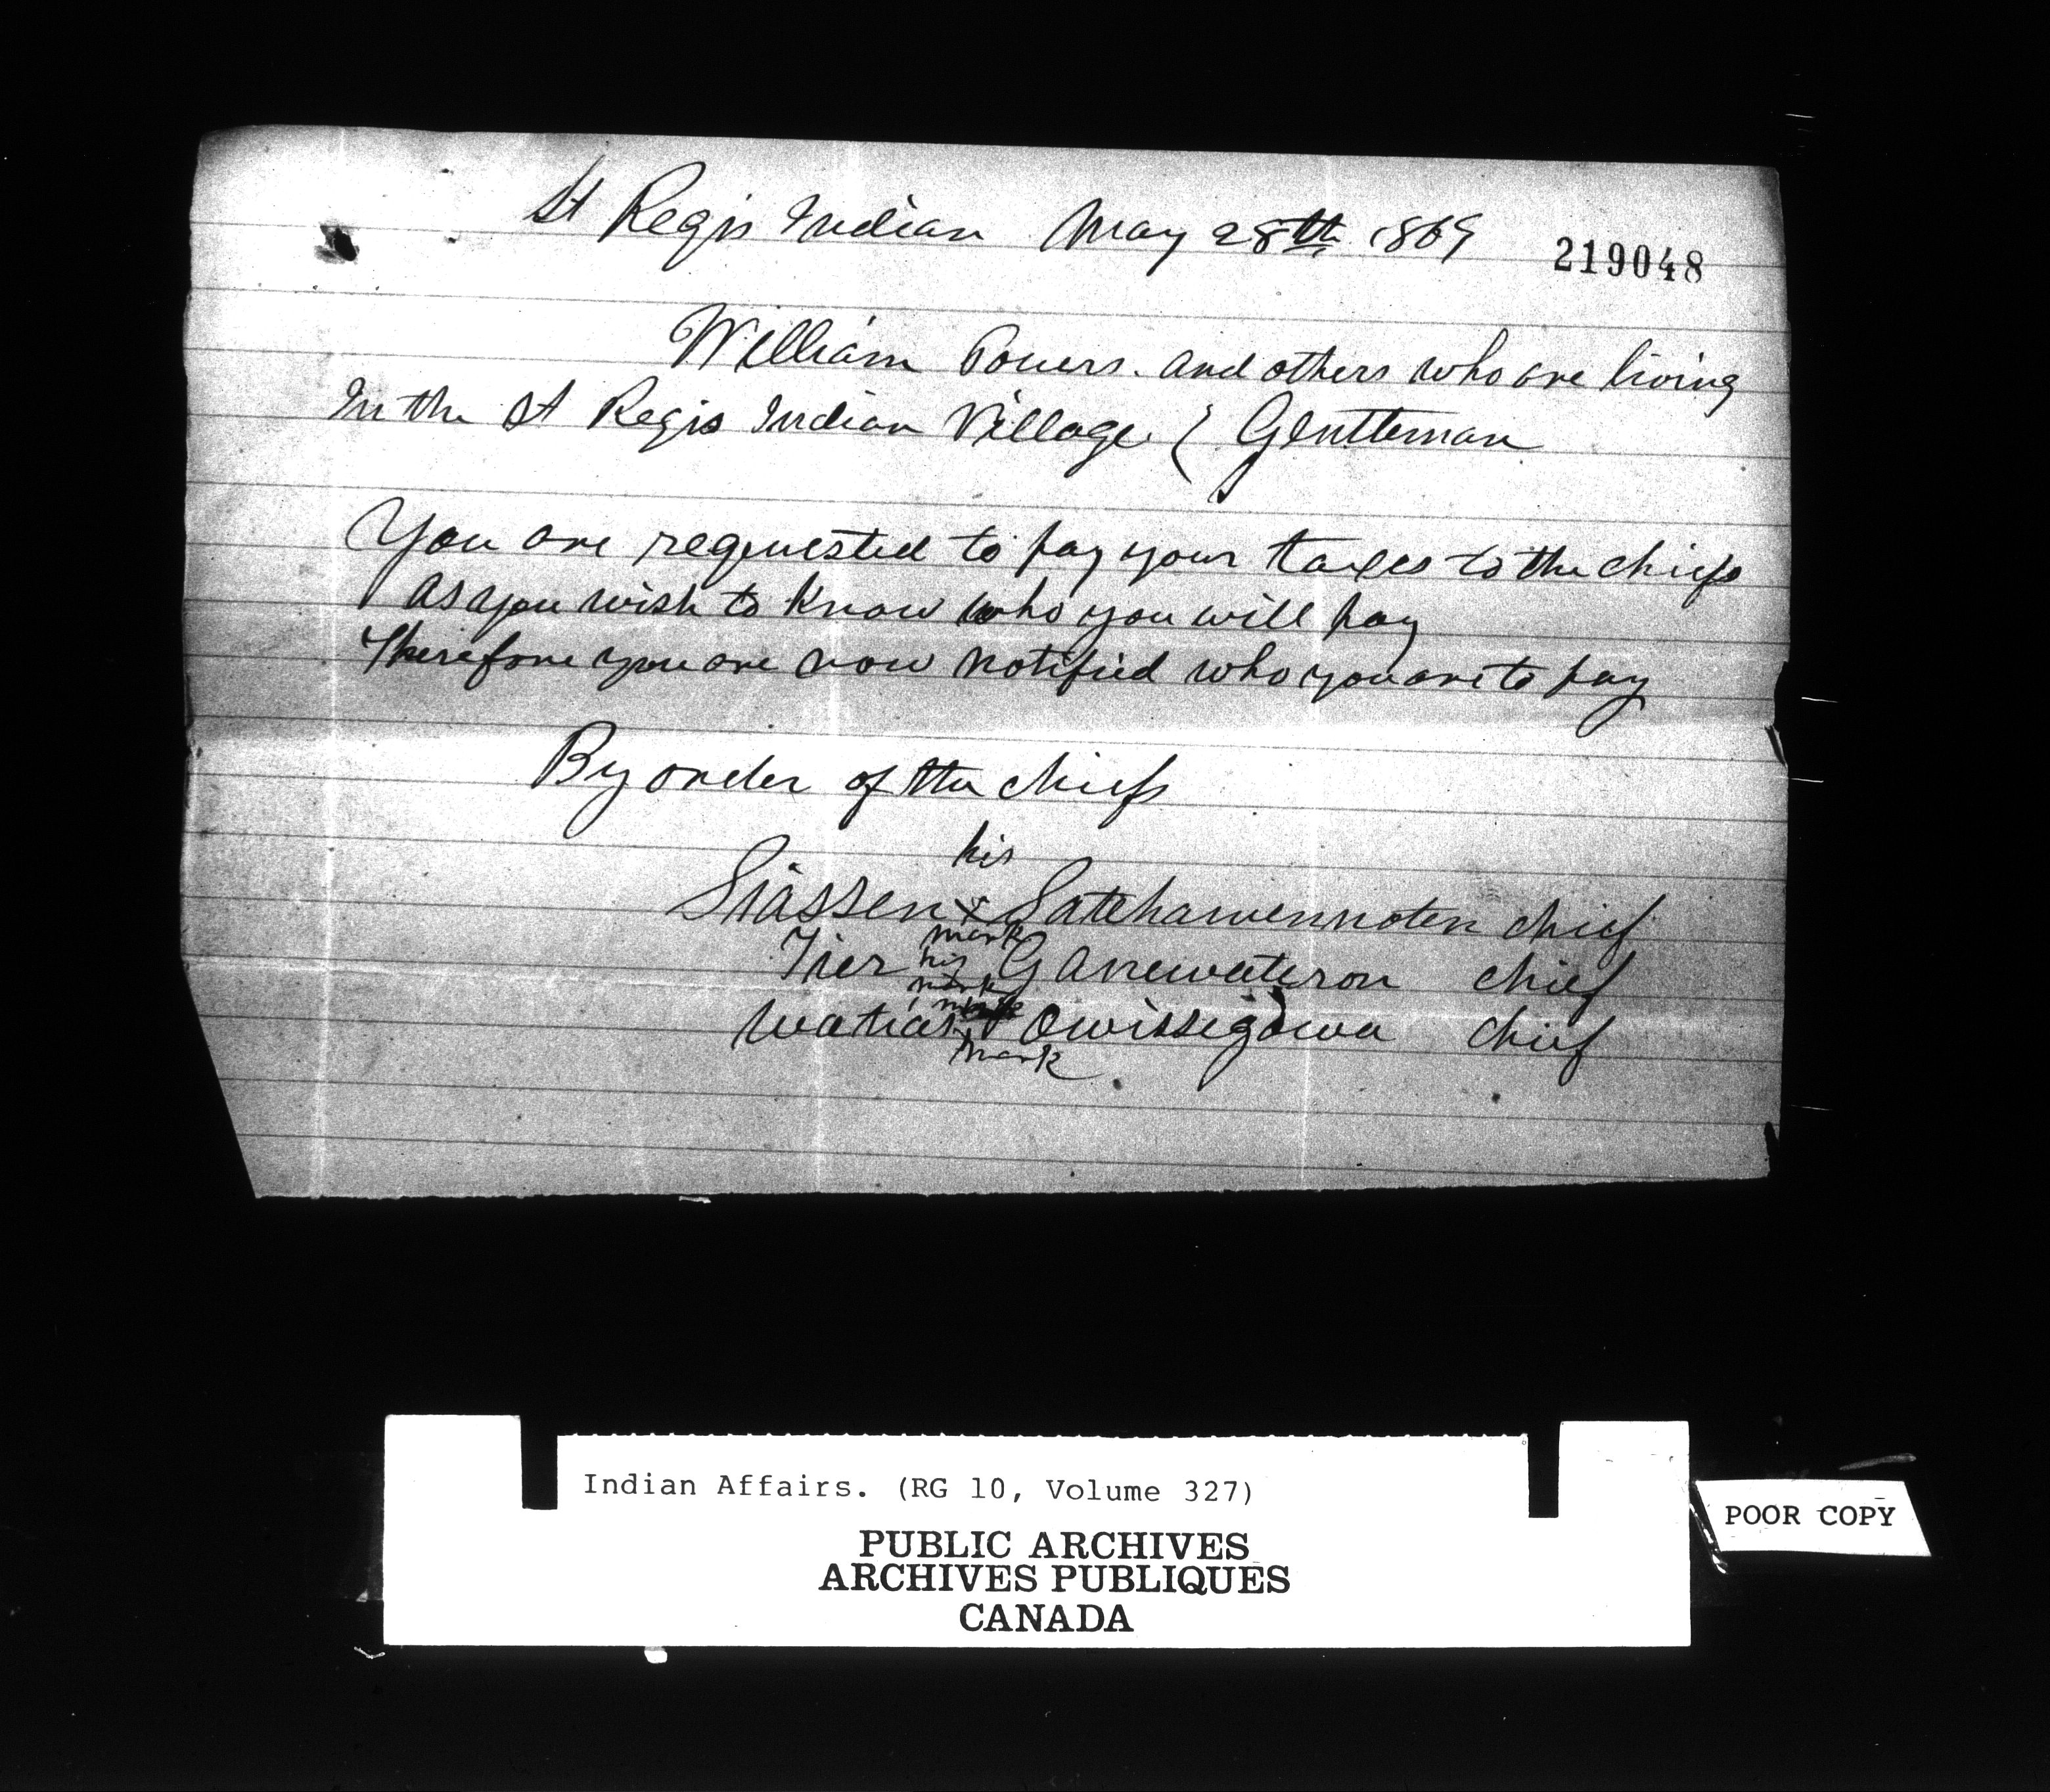 St Regis Indian May 28th 1869
219048
William Powers. and others who are living
In the St Regis Indian Village { Gentleman
You are requested to pay your taxes to the chiefs
As you wish to know who you will pay
Therefore you are now notified who you are to pay
By order of the chiefs
his
Siassen x Satehawennoten chief
mark
his
Tier Ganewateron chief
mark
Watias x Owissegowa chief
mark
Indian Affairs. (RG 10, Volume 327)
PUBLIC ARCHIVES
ARCHIVES PUBLIQUES
CANADA
POOR COPY